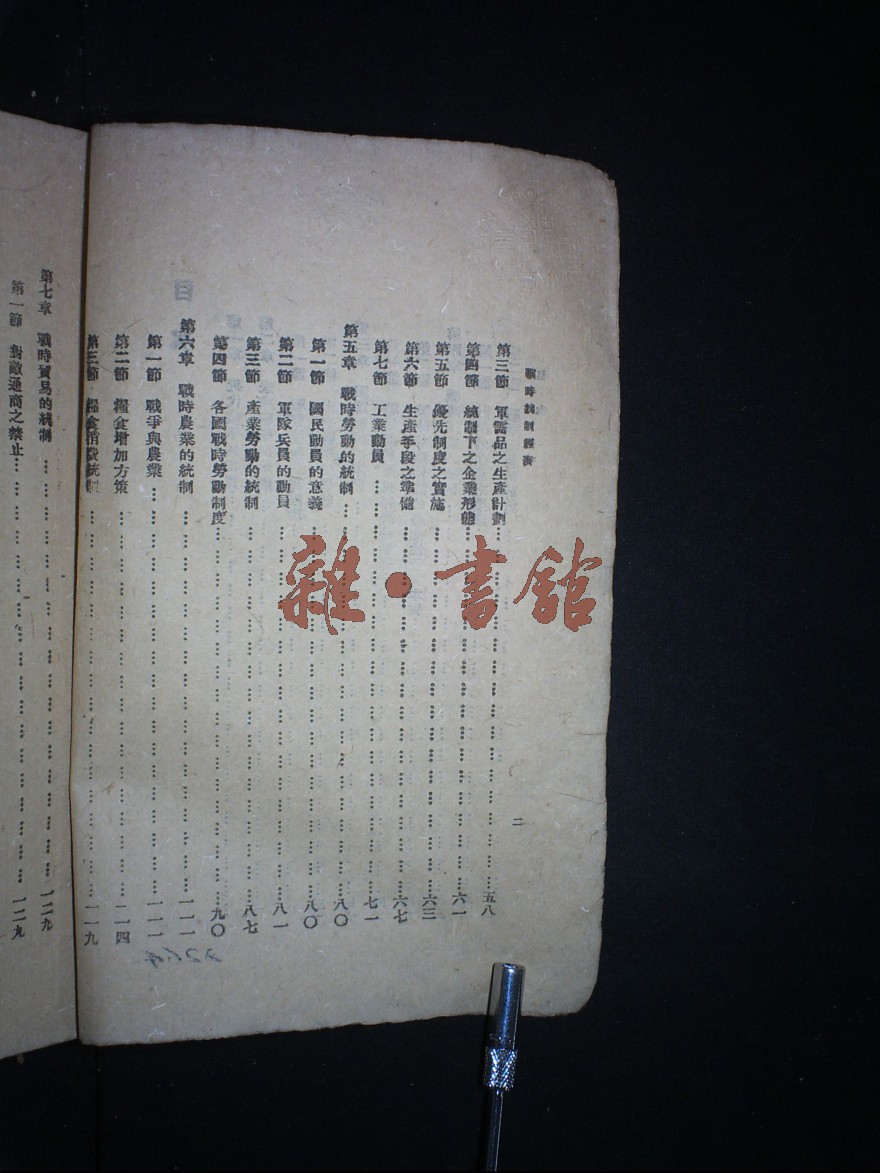 戰時統制經濟
二
第三節 軍需品之生產計劃………五八
第四節 統制下之企業形態………六一
第五節 優先制度之實施………六三
第六節 生產手段之準備………六七
第七節 工業動員………七一
第五章 戰時勞動的統制………八〇
第一節 國民動員的意義………八〇
第二節 軍隊兵員的動員………八一
第三節 產業勞動的統制………八七
第四節 各國戰時勞動制度………九〇
第六章 戰時農業的統制………一一一
第一節 戰爭與農業………一一一
第二節 糧食增加方策………一一四
第三節 糧食消費統制………一一九
第七章 戰時貿易的統制………一二九
第一節 對敵通商之禁止………一二九
雜·書館